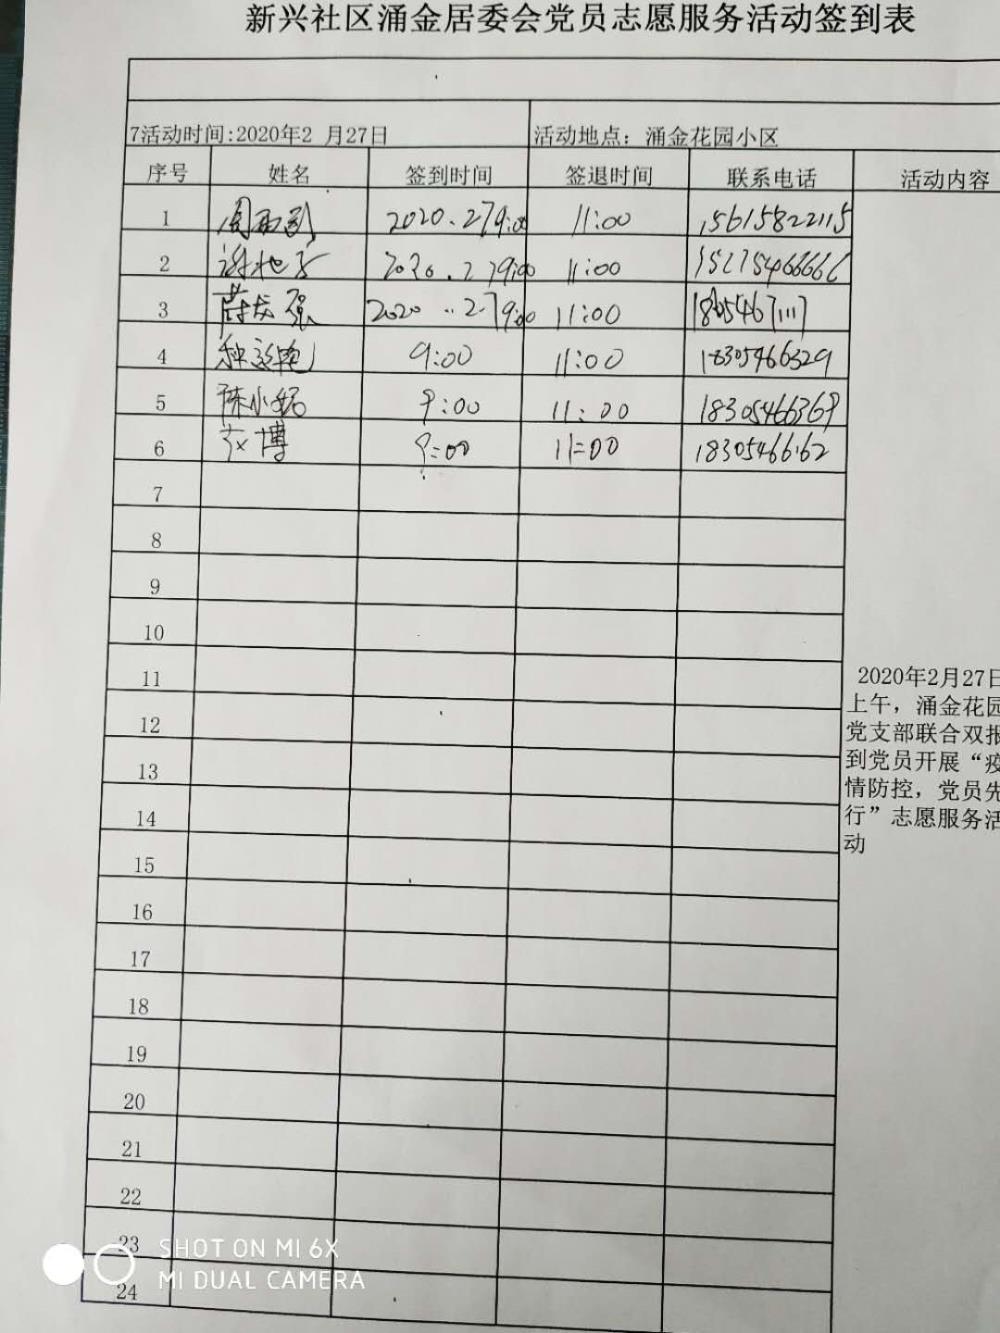 新兴社区涌金居委会党员志愿服务活动签到表
7活动时间:2020年2 月27日 活动地点：涌金花园小区
序号 姓名 签到时间 签退时间 联系电话 活动内容
1 2020.279:00 11:00 15615822115
2 2020.279:00 11:00 15275466666
3 强 2020..2.79:00 11:00
4 9:00 11:00 18305466329
5 陈小 9:00 11:00 18305466369
6 博 9:00 11:00 18305466162
7
8
9
10
11
12
13
14
15
16
17
18
19
20
21
22
23
24
2020年2月27日
上午，涌金花园
党支部联合双报
到党员开展“疫
情防控，党员先
行”志愿服务活
动
SHOT ON MI 6X
MI DUAL CAMERA